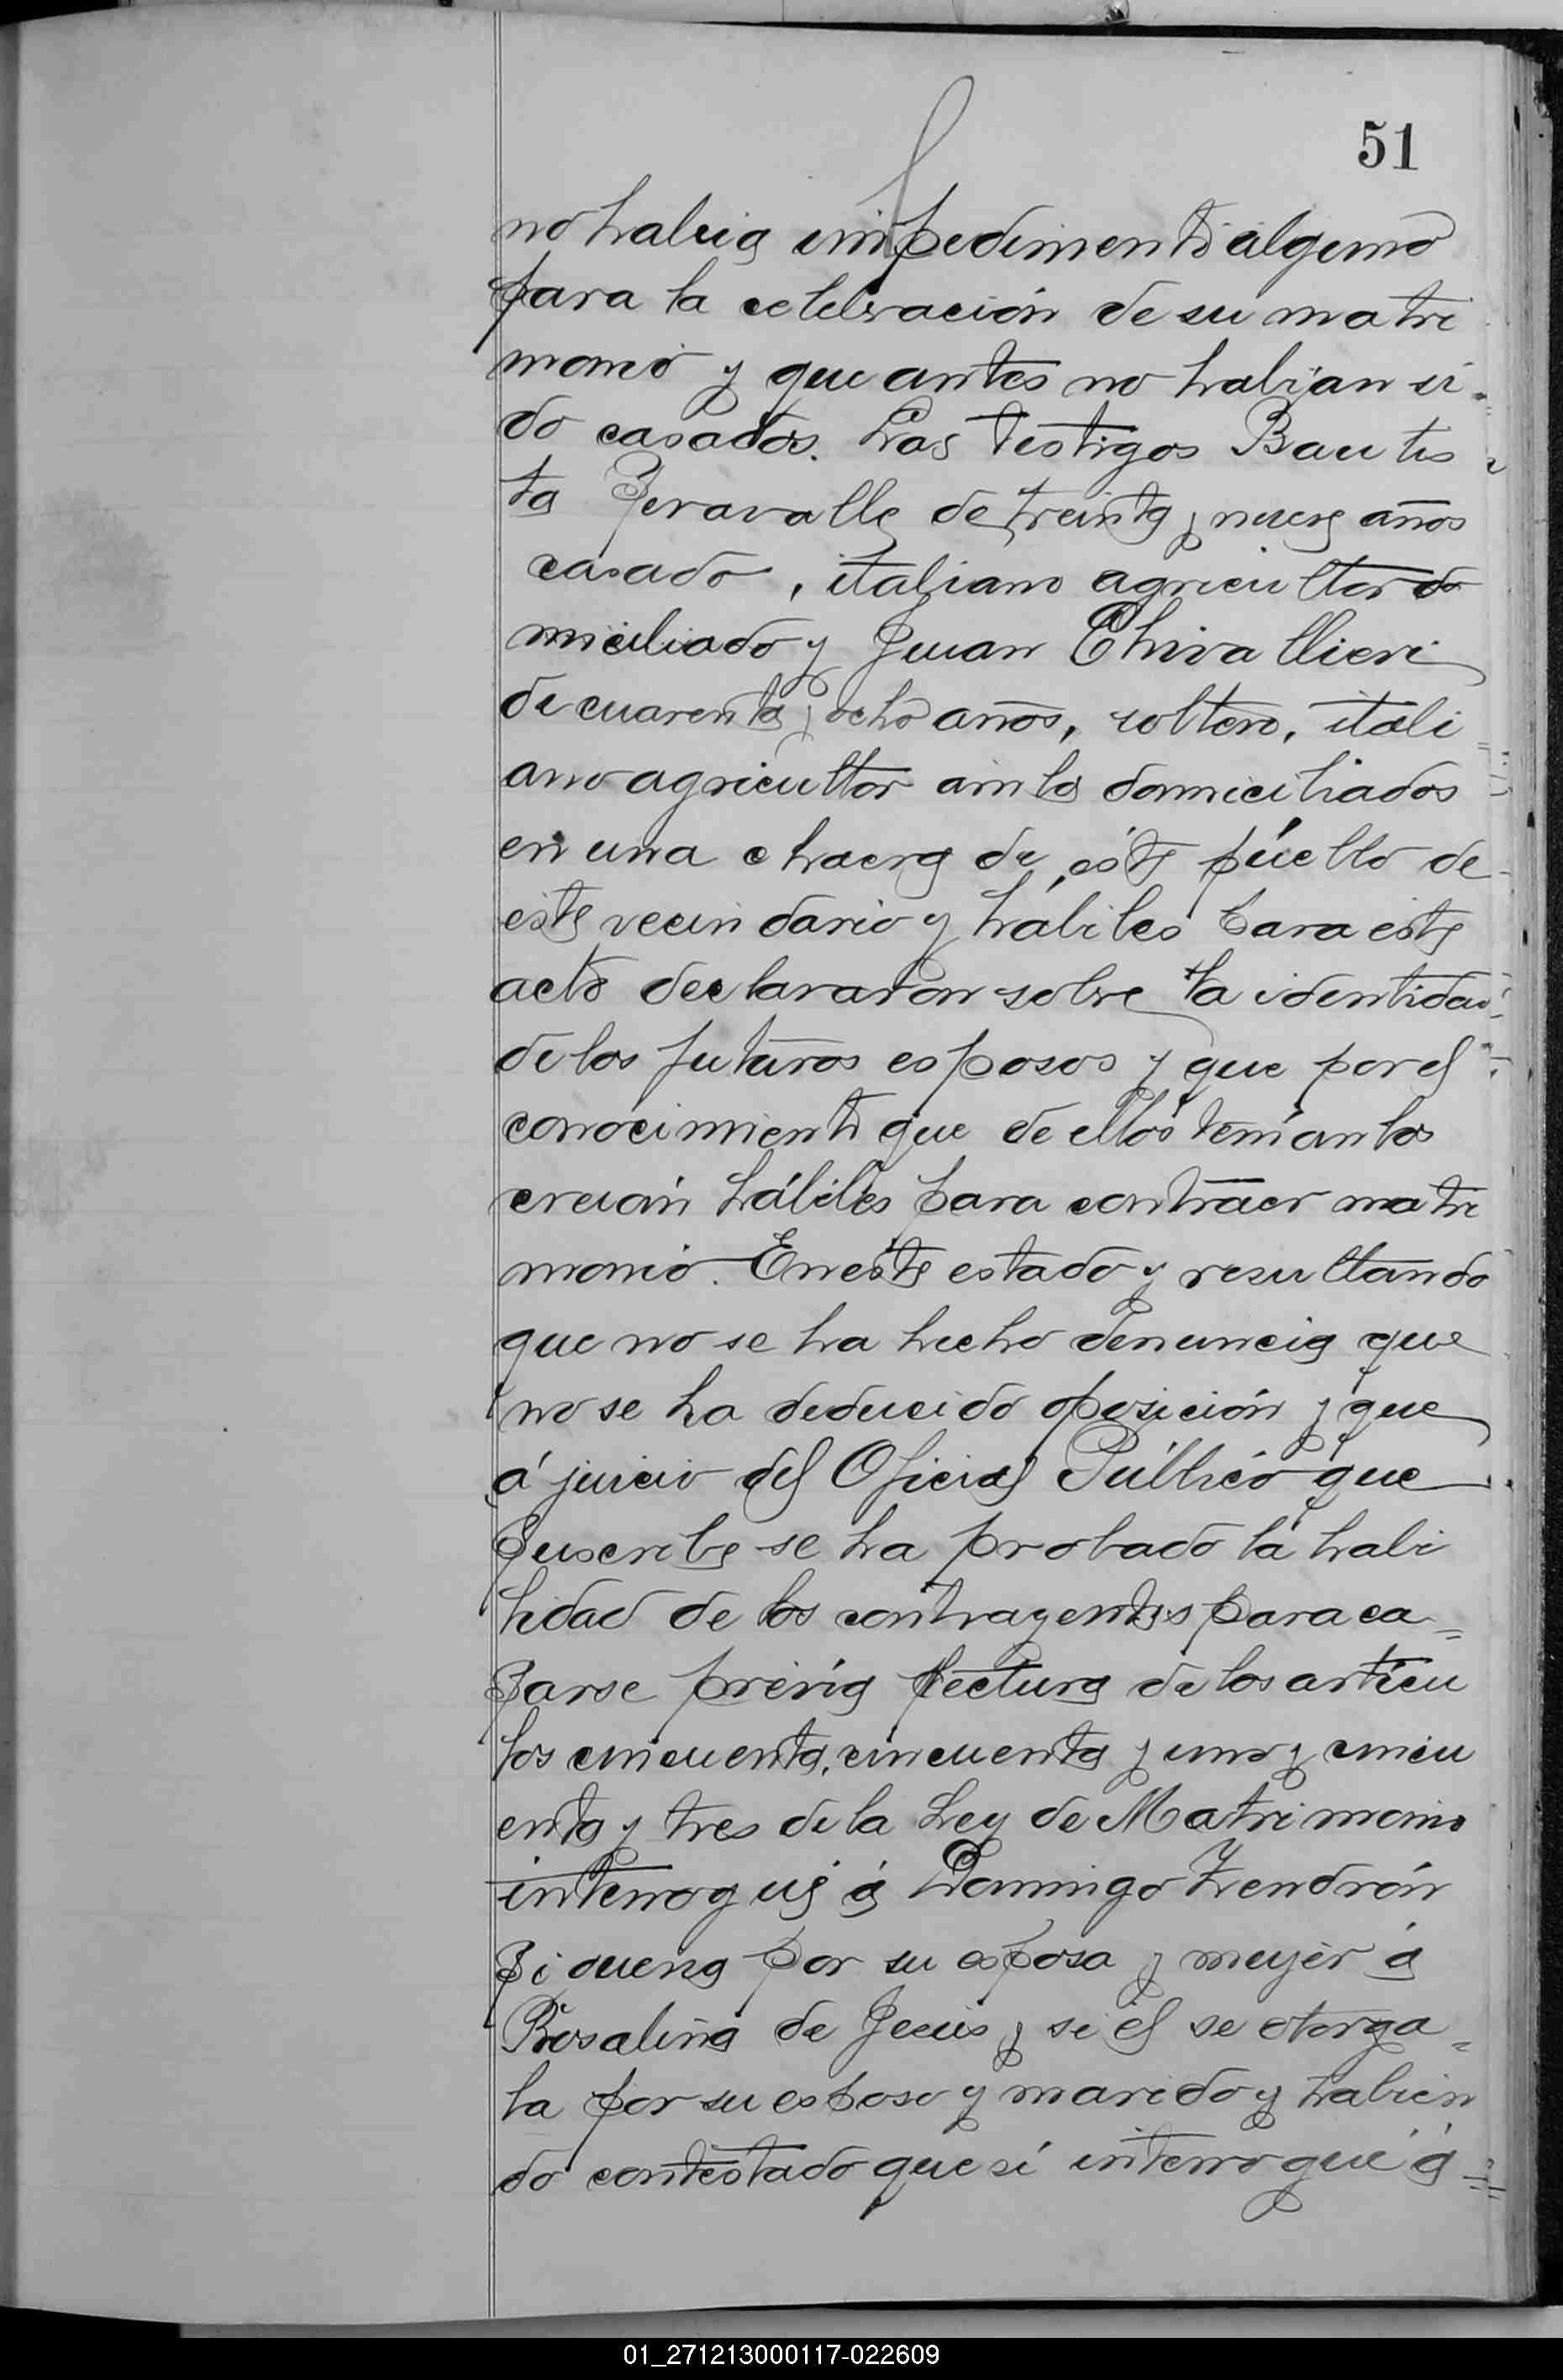 51
no habia impedimento alguno
para la celebración de su matri
monio y que antes no habian si-
do casados. Los testigos Bautis
ta Seravalle de treinta y nueve años
casado, italiano agricultor do
miciliado y Juan Chivallieri
de cuarenta y ocho años, soltero, itali
ano agricultor ambos domiciliados
en una chacra de éste pueblo de
este vecindario y hábiles para este
acto declararon sobre la identidad
de los futuros esposos y que por el
conocimiento que de ellos tenían los
creían hábiles para contraer matri
monio. En este estado y resultando
que no se ha hecho denuncia que
no se ha deducido oposición y que
á juicio del Oficial Público que
suscribe se ha probado la habi
lidad de los contrayentes para ca=
sarse prévia lectura de los artícu
los cincuenta, cincuenta y uno y cincu
enta y tres de la Ley de Matrimonio
interrogué á Domingo Zendrón
si queria por su esposa y mujer á
Rosalina de Jesús y si él se otorga=
ba por su esposo y marido y habien
do contestado que sí interrogué á
01_271213000117-022609